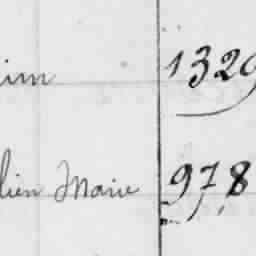 im 1329
lien Marie 978